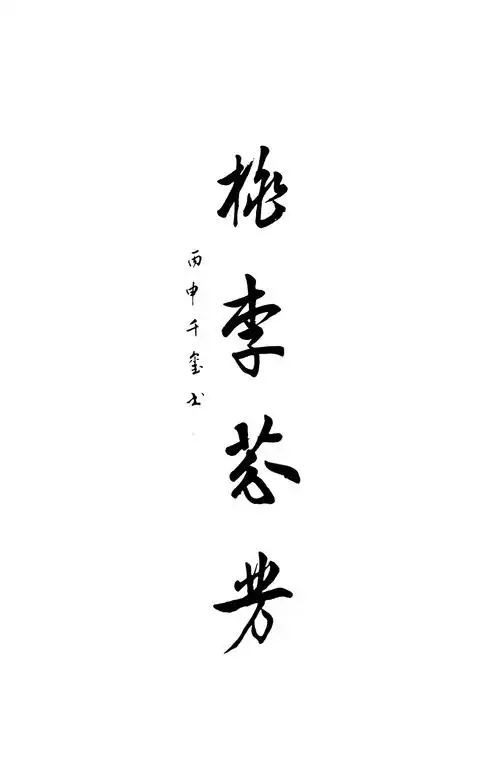 桃李芬芳
丙申千玺书